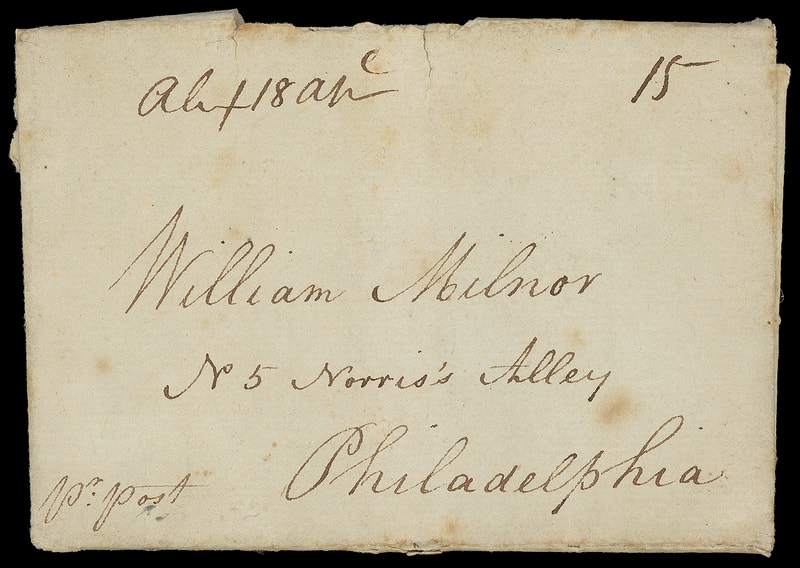 Alx 18 Ap 15
William Milnor
No 5 Norris's Alley
Philadelphia
Pr. post